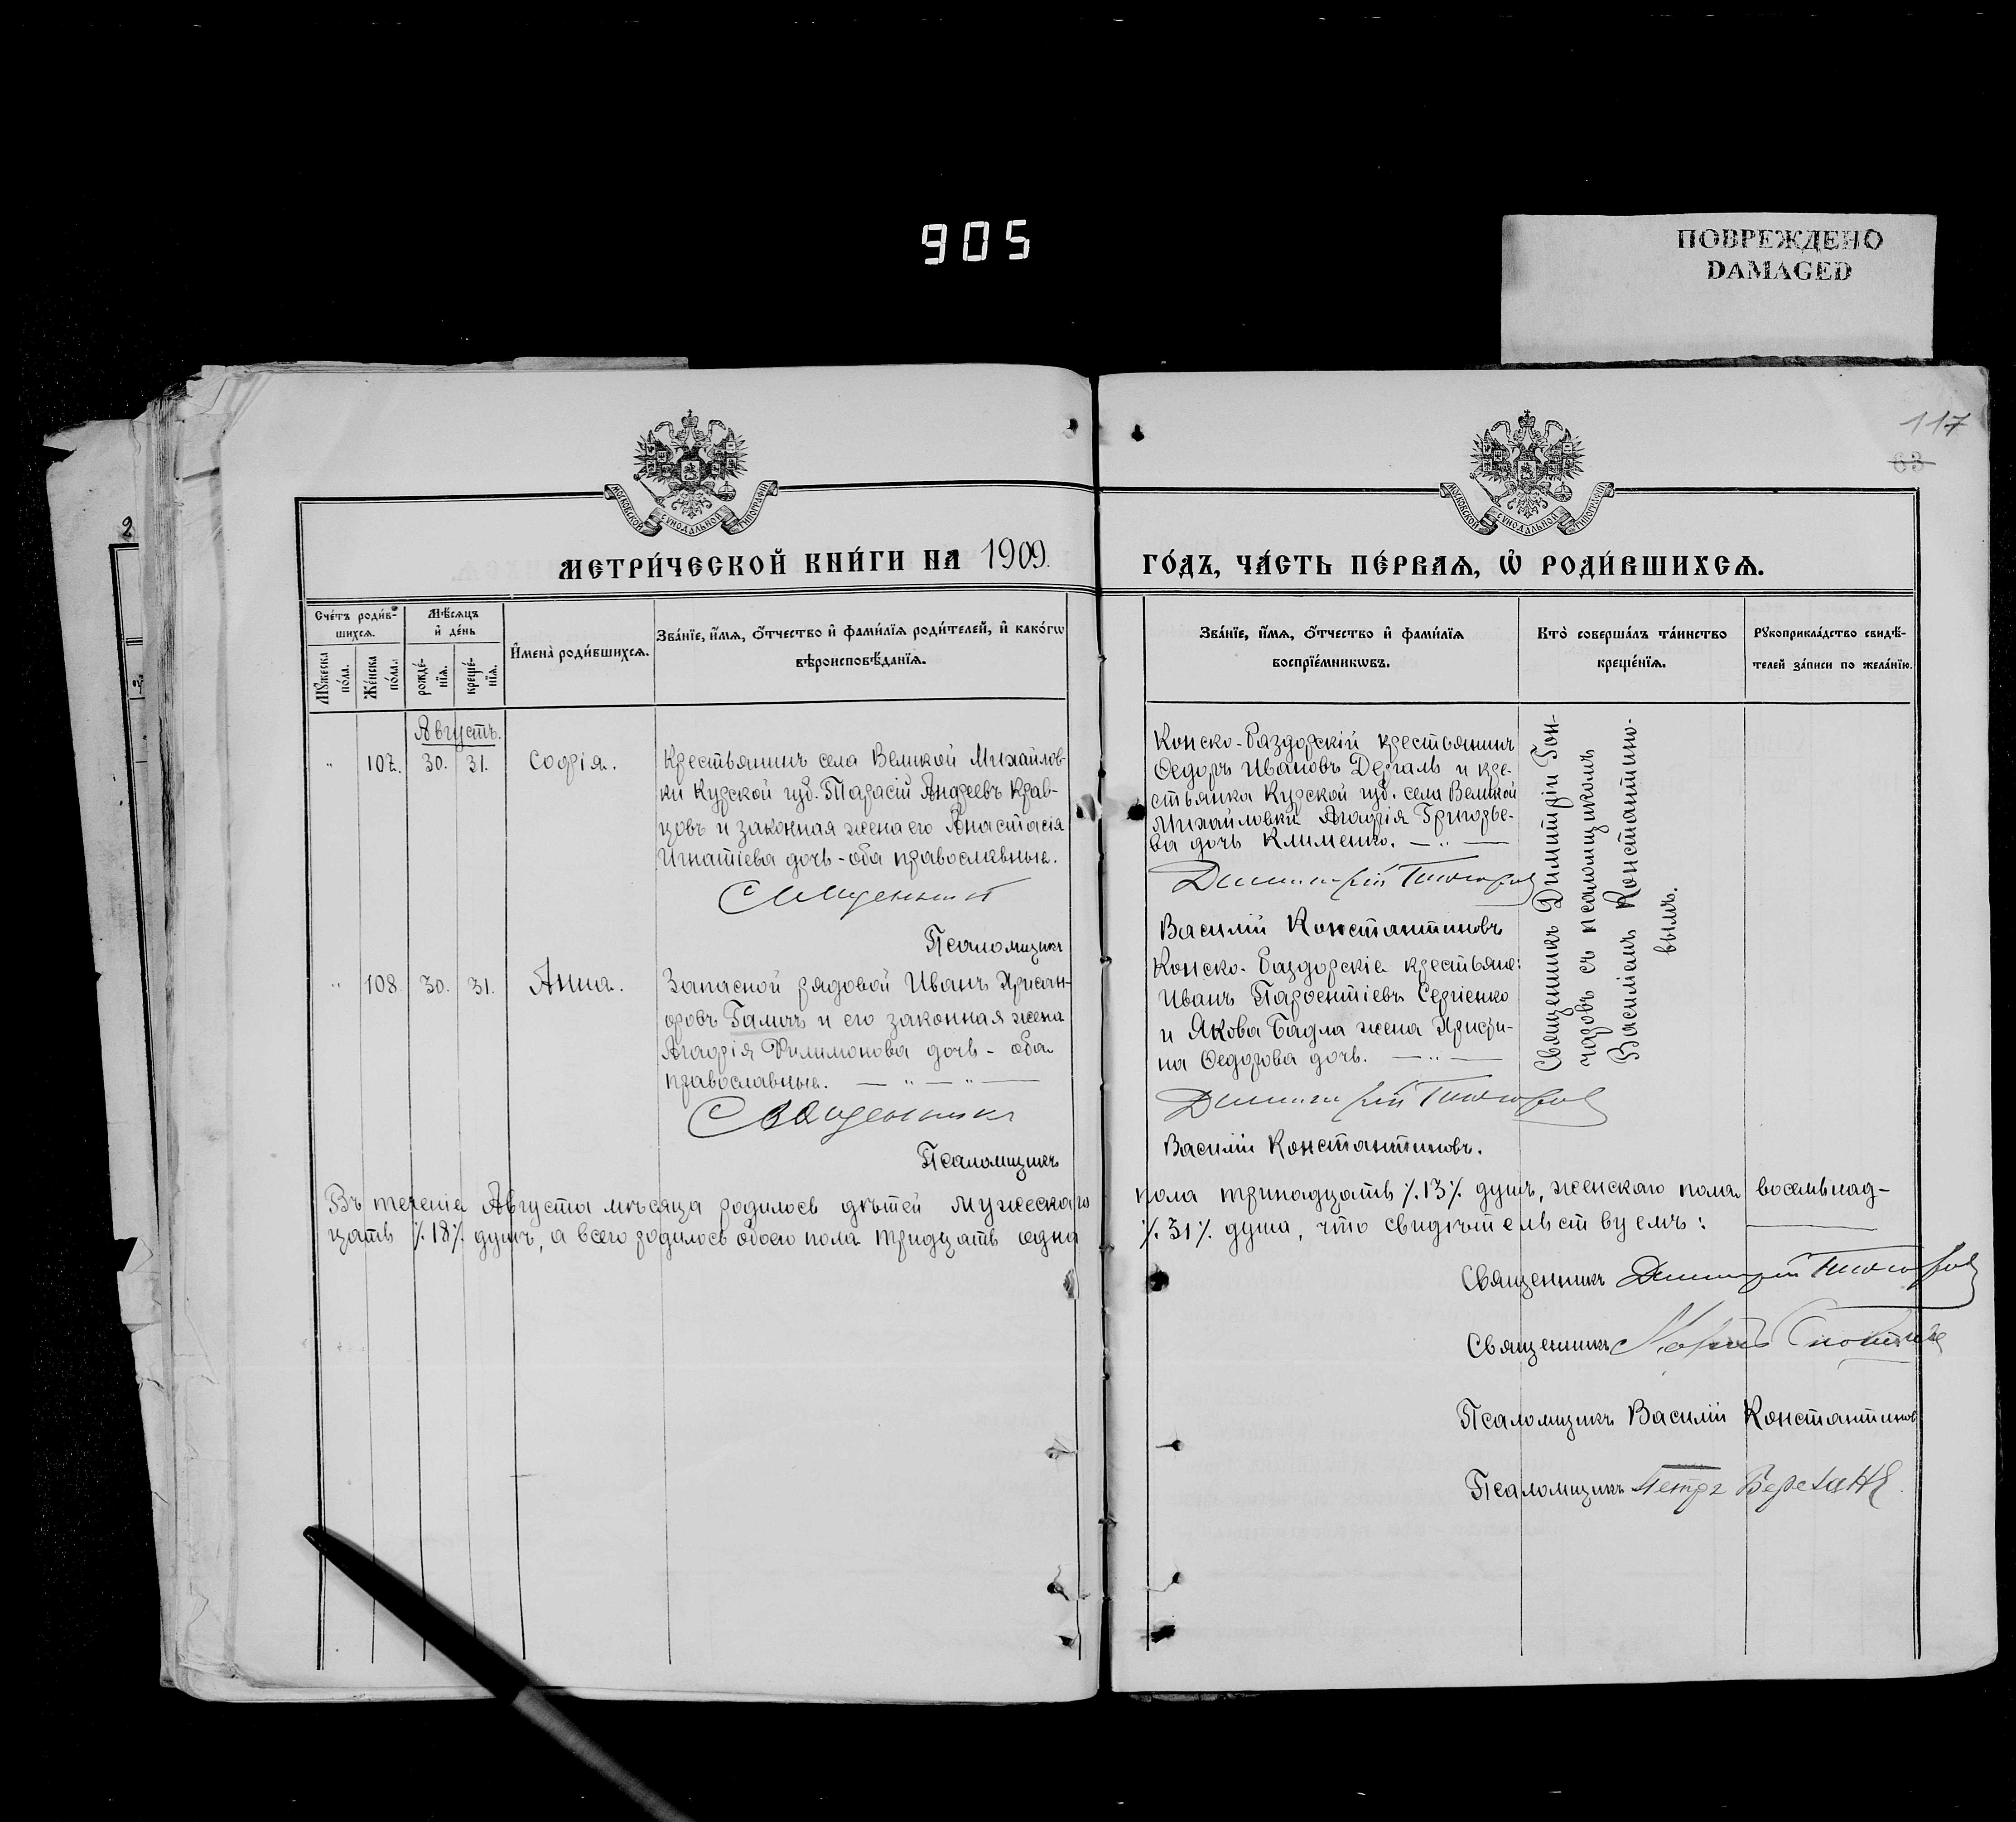 905
ПОВРЕЖДЕНО
DAMAGED
117
63
2
МОСКОВСКОЙ СѴНОДАЛЬНОЙ ТИПОГРАФІИ
МОСКОВСКОЙ СѴНОДАЛЬНОЙ ТИПОГРАФІИ
МЕТРИ́ЧЕСКОЙ КНИ́ГИ НА 1909.
ГО́ДЪ, ЧА́СТЬ ПЕ́РВАѦ, Ѡ҆ РОДИ́ВШИХСѦ.
Сче́тъ роди́в-
шихсѧ.
Мꙋ́жеска по́ла.
Же́нска по́ла.
Мѣ́сѧцъ
и҆ де́нь
рожде́-
нїѧ.
креще́-
нїѧ.
И҆мена̀ роди́вшихсѧ.
Зва́нїе, и҆́мѧ, ѻ҆́тчество и҆ фами́лїѧ роди́телей, и҆ како́гѡ
вѣроисповѣ́данїѧ.
Зва́нїе, и҆́мѧ, ѻ҆́тчество и҆ фами́лїѧ
воспрїе́мникѡвъ.
Кто̀ соверша́лъ та́инство
креще́нїѧ.
Рꙋкоприкла́дство свидѣ́-
телей за́писи по жела́нїю.
Августъ.
" 107. 30. 31. Софія.
Крестьянинъ села Великой Михайлов-
ки Курской губ. Тарасій Андреевъ Крав-
цовъ и законная жена его Анастасія
Игнатіева дочь - оба православные.
Священникъ
Псаломщикъ
Конско-Раздорскій крестьянинъ
Ѳедоръ Ивановъ Дергаль и кре-
стьянка Курской губ. села Великой
Михайловки Агафія Григорье-
ва дочь Клименко. — " —
Димитрій Гончаровъ
Василій Константиновъ
Священникъ Димитрій Гон-
чаровъ съ псаломщикомъ
Василіемъ Константино-
вымъ.
" 108. 30. 31. Анна.
Запасной рядовой Иванъ Хрисан-
фовъ Галичъ и его законная жена
Агафія Филимонова дочь - оба
православные. — " — " —
Священникъ
Псаломщикъ
Конско-Раздорскіе крестьяне:
Иванъ Парфентіевъ Сергіенко
и Якова Бадла жена Христи-
на Ѳедорова дочь. — " —
Димитрій Гончаровъ
Василій Константиновъ.
Въ теченіе Августа мѣсяца родилось дѣтей мужескаго пола тринадцать /.13/. душъ, женскаго пола восемьнад-
цать /.18/. душъ, а всего родилось обоего пола тридцать одна /.31/. душа, что свидѣтельствуемъ:
Священникъ Димитрій Гончаровъ
Священникъ
Псаломщикъ Василій Константинов
Псаломщикъ Петръ